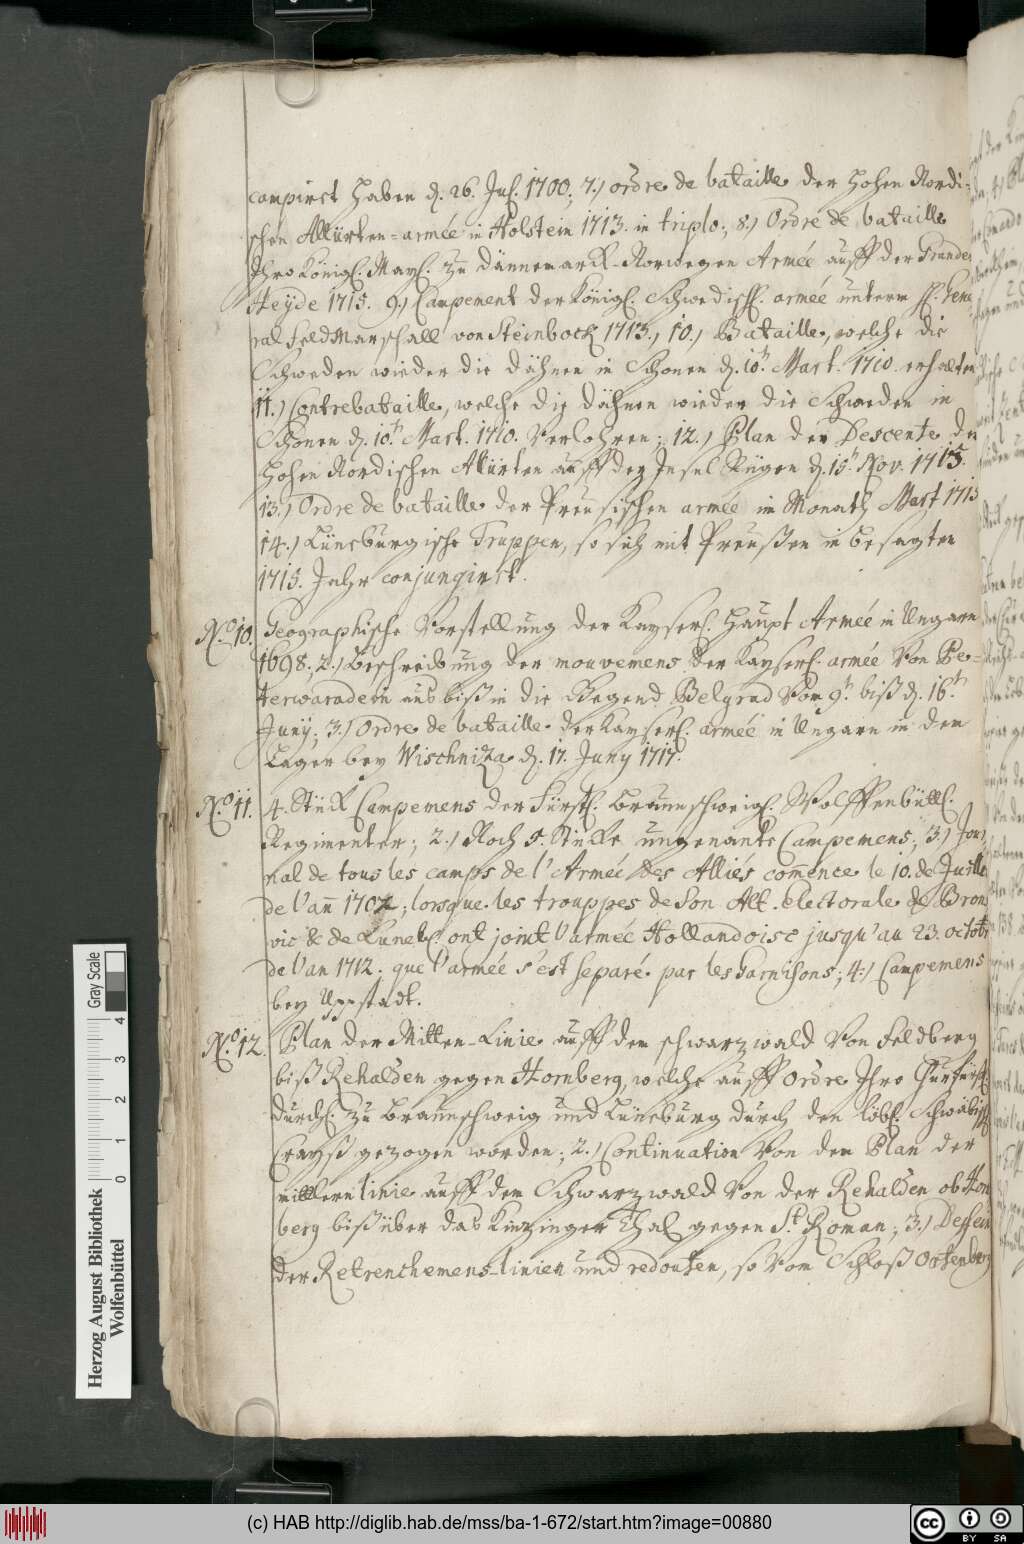 campirt haben d. 26. Jul. 1700; 7.) ordre de bataille der hohen Nordi-
schen Alliirten-armée in Holstein 1713. in triplo; 8.) Ordre de bataille
Ihro Königl. May. zu Dännemarck-Norwegen Armée auff der
Heyde 1715. 9.) Campement der Königl. Schwedisch. armée unterm H. Gene-
ral FeldMarschall von Steinbock 1713., 10.) Bataille, welche die
Schweden wieder die Dähnen in Schonen d. 10.t Mart. 1710. erhalten
11.) Contrebataille, welche die Dähnen wieder die Schweden in
Schonen d. 10.t Mart. 1710. verlohren; 12.) Plan der Descente der
hohen Nordischen Alliirten auff der Insel Rügen d. 15.t Nov. 1715.
13.) Ordre de bataille der Preusischen armée im Monath Mart 1715
14.) Lüneburgische Truppen, so sich mit Preußen in besagten
1715. Jahr conjungirt.
No. 10. Geographische Vorstellung der Kayserl. Haupt Armée in Ungarn
1698; 2.) Beschreibung der mouvemens der Kayserl. armée von Pe-
terwaradein aus biß in die Gegend Belgrad vom 9.t biß d. 16.t
Juny; 3.) Ordre de bataille der Kayserl. armée in Ungarn in dem
Lager bey Wischniza d. 17. Juny 1717.
No. 11. 4. Stück Campemens der Fürstl. Braunschweigl. Wolffenbüttl.
Regimenter; 2.) Noch 5. Stücke ungenante Campemens; 3.) Jour-
nal de tous les camps de l'Armée des Alliés comence le 10. de Juille
de l'an 1702; lorsque les trouppes de Son Alt. Electorale de Bron
vic & de Luneb. ont joint l'armée Hollandoise jusqu'au 23. octobr
de l'an 1712. que l'armée s'est separé par les Garnisons; 4.) Campemens
bey
No. 12. Plan der Mitten-Linie auff dem schwarzwald von Feldberg
biß Rehalden gegen Hornberg, welche auff Ordre Ihro Churfürstl.
Durchl. zu Braunschweig und Lüneburg durch den löbl. Schwäbisch.
Crayß gezogen worden; 2.) Continuation von dem Plan der
mittlern linie auff dem Schwarzwald von der Rehalden ob Horn
berg biß über das Kinzinger Thal gegen St. Roman; 3.) Dessein
der Retrenchemens-linien und redouten, so vom Schloß Ortenberg
Herzog August Bibliothek
Wolfenbüttel
0 1 2 3 4
Gray Scale
(c) HAB http://diglib.hab.de/mss/ba-1-672/start.htm?image=00880
cc BY SA